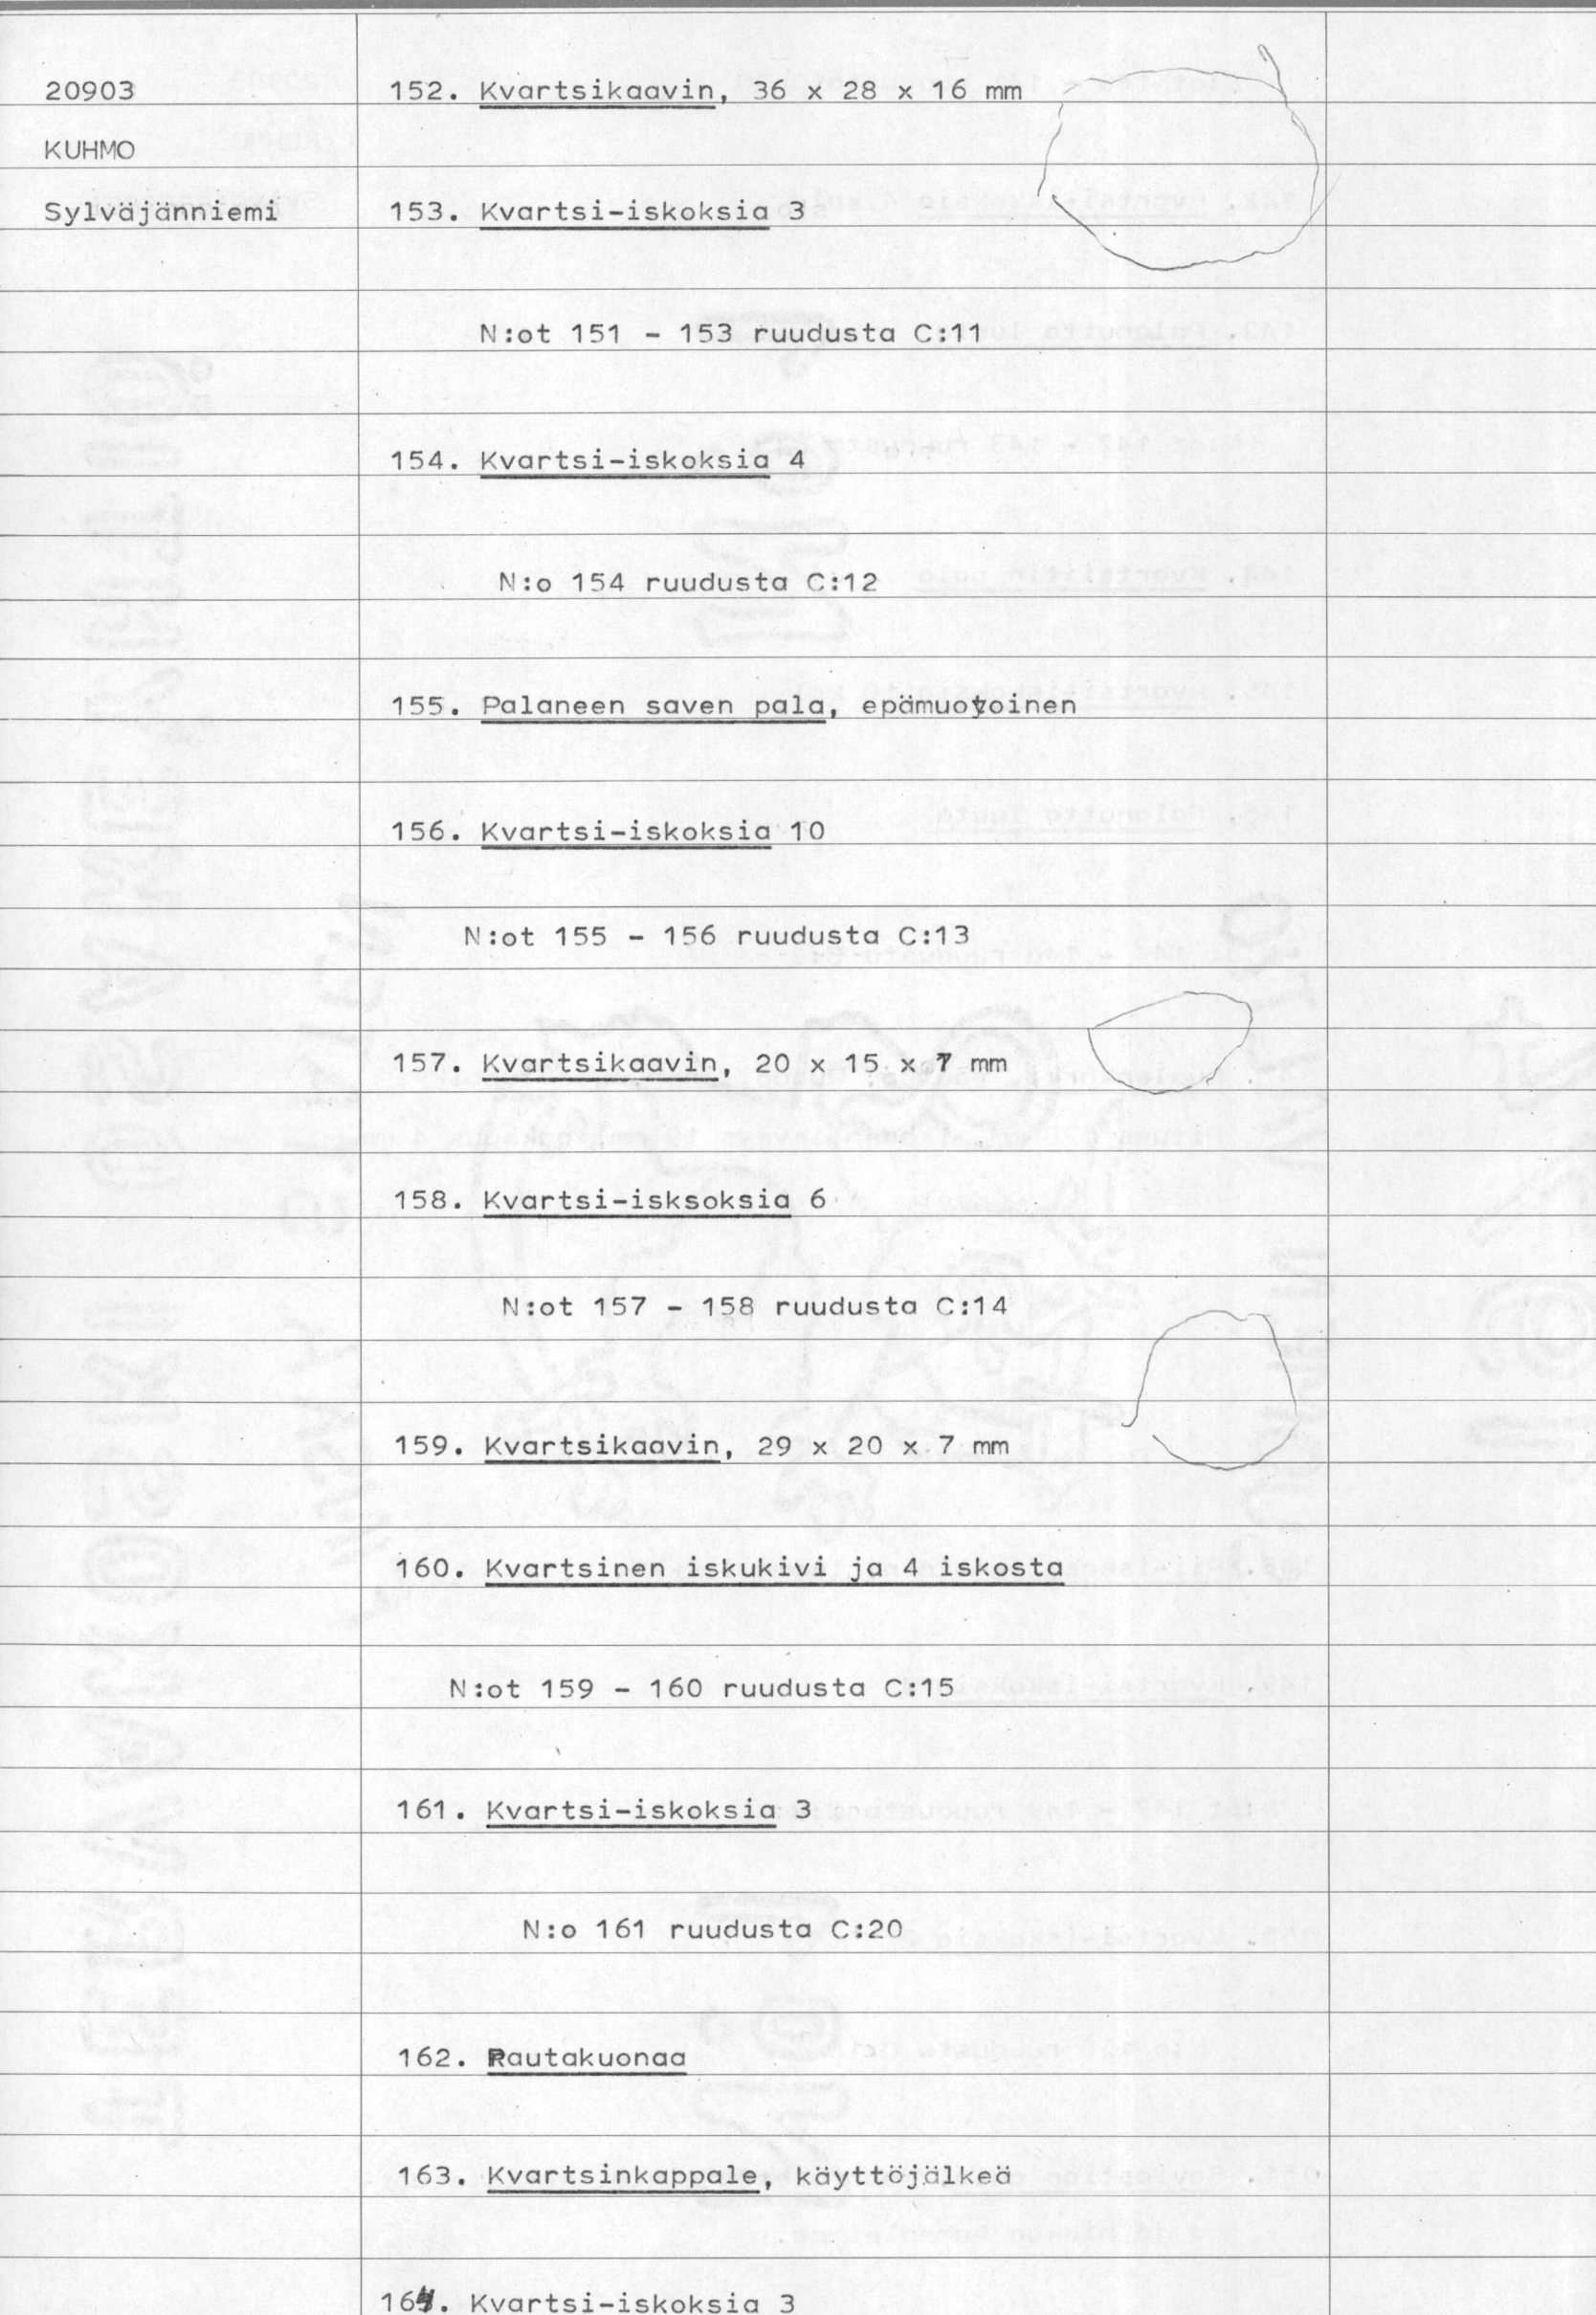 20903
KUHMO
Sylväjänniemi
152. Kvartsikaavin, 36 x 28 x 16 mm
153. Kvartsi-iskoksia 3
N:ot 151 - 153 ruudusta C:11
154. Kvartsi-iskoksia 4
N:o 154 ruudusta C:12
155. Palaneen saven pala, epämuotoinen
156. Kvartsi-iskoksia 10
N:ot 155 - 156 ruudusta C:13
157. Kvartsikaavin, 20 x 15 x 7 mm
158. Kvartsi-isksoksia 6
N:ot 157 - 158 ruudusta C:14
159. Kvartsikaavin, 29 x 20 x 7 mm
160. Kvartsinen iskukivi ja 4 iskosta
N:ot 159 - 160 ruudusta C:15
161. Kvartsi-iskoksia 3
N:o 161 ruudusta C:20
162. Rautakuonaa
163. Kvartsinkappale, käyttöjälkeä
164. Kvartsi-iskoksia 3